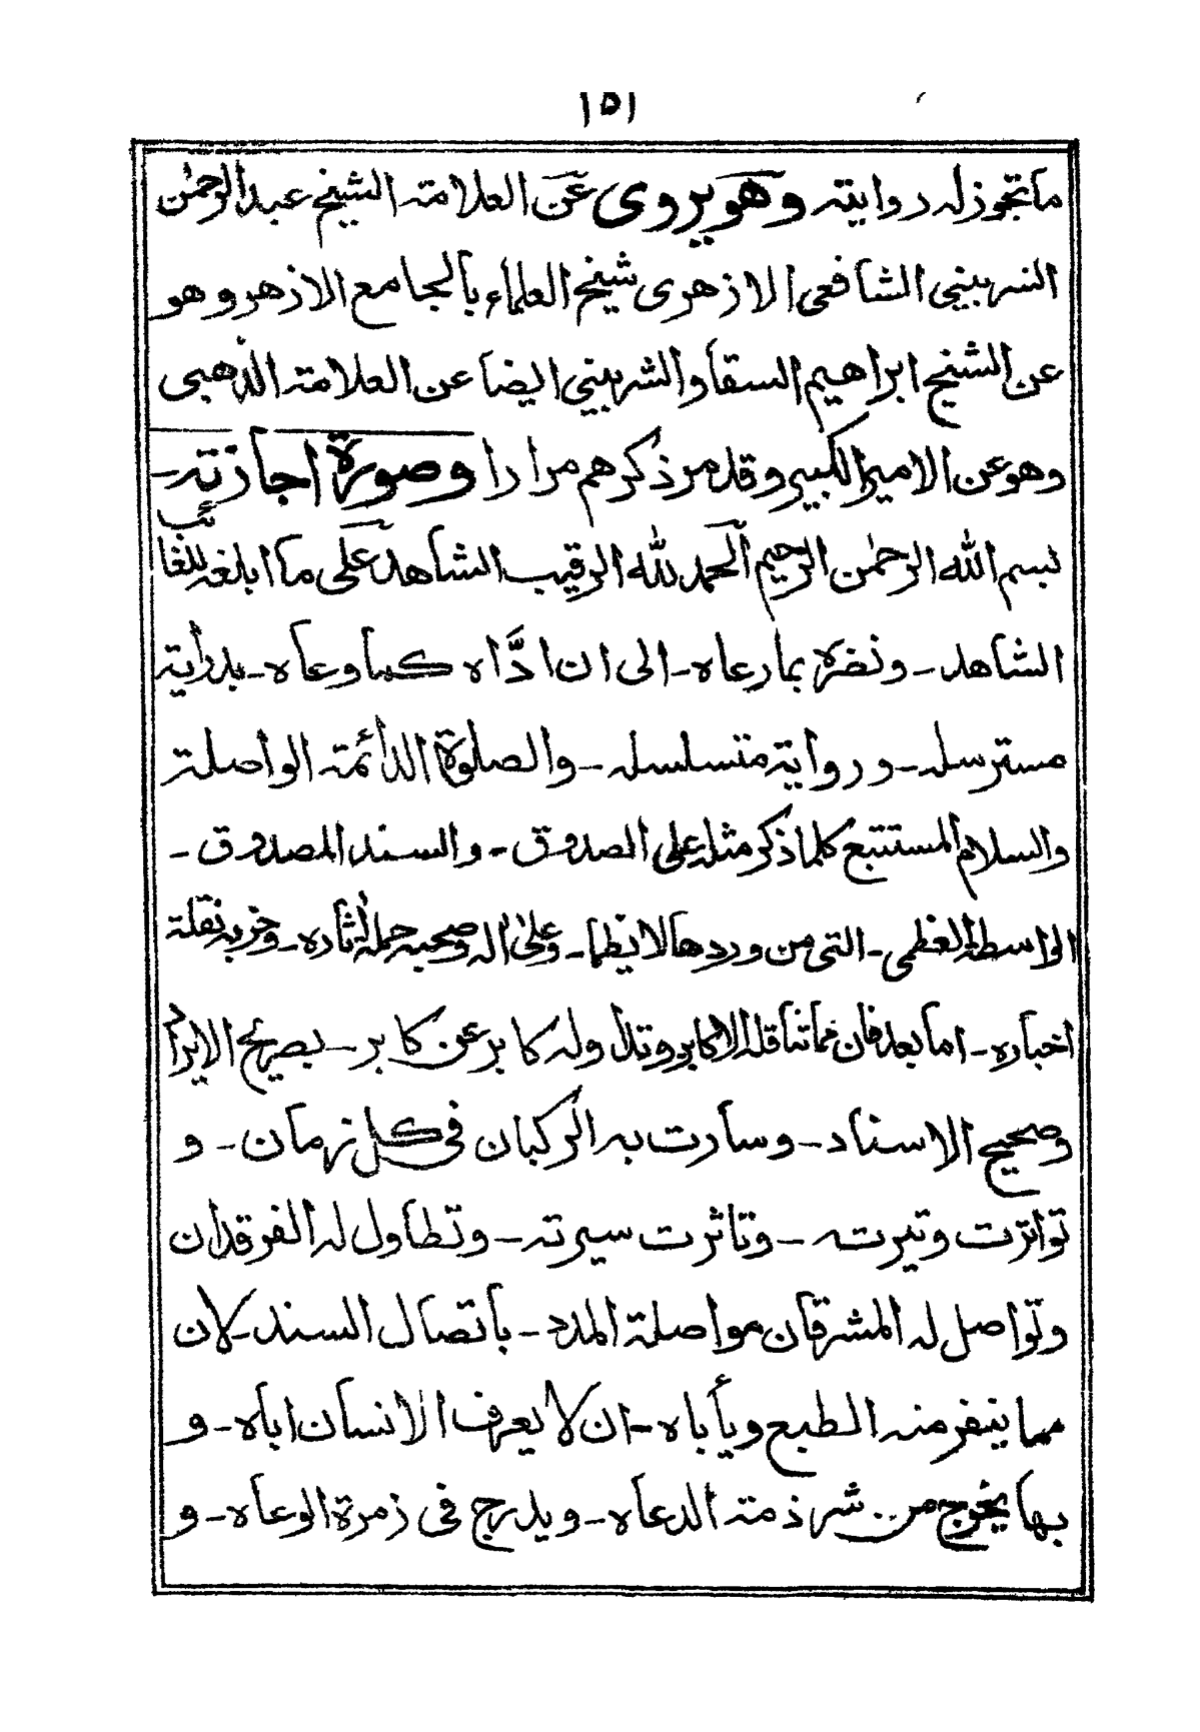 ١٥١
ما تجوز له روايته وهو يروى عن العلامة الشيخ عبد الرحمٰن
الشربيني الشافعى الازهرى شيخ العلماء بالجامع الازهر وهو
عن الشيخ ابراهيم السقا والشربيني ايضا عن العلامة الذهبى
وهو عن الامير الكبير وقد مر ذكرهم مرارا وصورة اجازته ـ
بسم الله الرحمٰن الرحيم الحمد لله الرقيب الشاهد على ما ابلغه للغائب
الشاهد ـ ونضره بما رعاه ـ الى ان ادَّاه كما وعاه ـ بدراية
مسترسله ـ ورواية متسلسله ـ والصلوة الدائمة الواصلة
والسلام المستتبع كلما ذكر مثله على الصدوق ـ والسند المصدوق ـ
الواسطة العظمى ـ التى من وردها لا يظما ـ وعلىٰ اٰله وصحبه حملة اٰثاره ـ وحزبه نقلة
اخباره ـ اما بعد فان مما تناقله الاكابر وتداوله كابر عن كابر ـ بصريح الايراد
وصحيح الاسناد ـ وسارت به الركبان فى كل زمان ـ و
تواترت وتيرته ـ وتاثرت سيرته ـ وتطاول له الفرقدان
وتواصل له المشرقان مواصلة المدد ـ باتصال السند ـ لان
مما ينفر منه الطبع ويأباه ـ ان لا يعرف الانسان اباه ـ و
بها يخرج من شرذمة الدعاه ـ ويدرج فى زمرة الوعاه ـ و